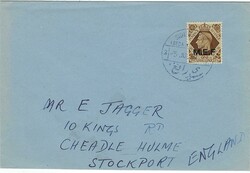 M.E.F.
MR E JAGGER
10 KINGS RD
CHEADLE HULME
STOCKPORT
ENGLAND